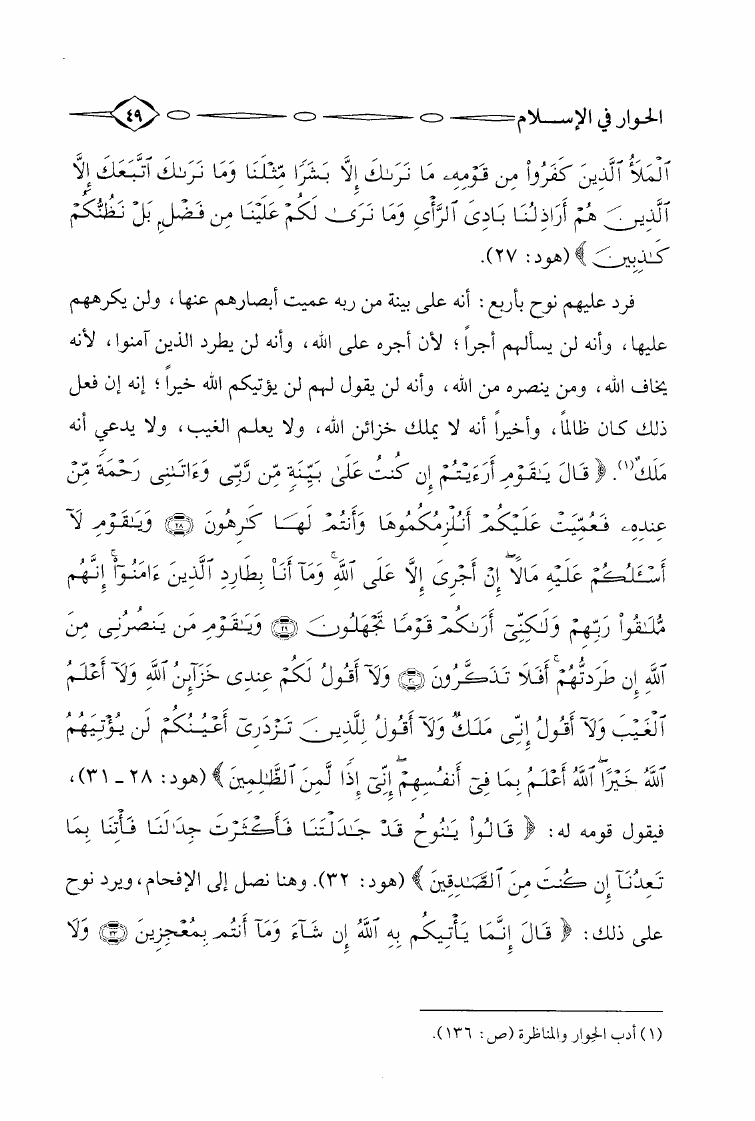 الحوار في الإســـلام ٤٩
ٱلْمَلَأُ ٱلَّذِينَ كَفَرُوا۟ مِن قَوْمِهِۦ مَا نَرَىٰكَ إِلَّا بَشَرًا مِّثْلَنَا وَمَا نَرَىٰكَ ٱتَّبَعَكَ إِلَّا
ٱلَّذِينَ هُمْ أَرَاذِلُنَا بَادِىَ ٱلرَّأْىِ وَمَا نَرَىٰ لَكُمْ عَلَيْنَا مِن فَضْلٍۭ بَلْ نَظُنُّكُمْ
كَـٰذِبِينَ ﴾ (هود: ٢٧).
فرد عليهم نوح بأربع: أنه على بينة من ربه عميت أبصارهم عنها، ولن يكرههم
عليها، وأنه لن يسألهم أجراً؛ لأن أجره على الله، وأنه لن يطرد الذين آمنوا، لأنه
يخاف الله، ومن ينصره من الله، وأنه لن يقول لهم لن يؤتيكم الله خيراً؛ إنه إن فعل
ذلك كان ظالماً، وأخيراً أنه لا يملك خزائن الله، ولا يعلم الغيب، ولا يدعي أنه
مَلَكٌ(١). ﴿ قَالَ يَـٰقَوْمِ أَرَءَيْتُمْ إِن كُنتُ عَلَىٰ بَيِّنَةٍ مِّن رَّبِّى وَءَاتَىٰنِى رَحْمَةً مِّنْ
عِندِهِۦ فَعُمِّيَتْ عَلَيْكُمْ أَنُلْزِمُكُمُوهَا وَأَنتُمْ لَهَا كَـٰرِهُونَ ﴿٢٨﴾ وَيَـٰقَوْمِ لَآ
أَسْـَٔلُكُمْ عَلَيْهِ مَالًا ۖ إِنْ أَجْرِىَ إِلَّا عَلَى ٱللَّهِ ۚ وَمَآ أَنَا۠ بِطَارِدِ ٱلَّذِينَ ءَامَنُوٓا۟ ۚ إِنَّهُم
مُّلَـٰقُوا۟ رَبِّهِمْ وَلَـٰكِنِّىٓ أَرَىٰكُمْ قَوْمًا تَجْهَلُونَ ﴿٢٩﴾ وَيَـٰقَوْمِ مَن يَنصُرُنِى مِنَ
ٱللَّهِ إِن طَرَدتُّهُمْ ۚ أَفَلَا تَذَكَّرُونَ ﴿٣٠﴾ وَلَآ أَقُولُ لَكُمْ عِندِى خَزَآئِنُ ٱللَّهِ وَلَآ أَعْلَمُ
ٱلْغَيْبَ وَلَآ أَقُولُ إِنِّى مَلَكٌ وَلَآ أَقُولُ لِلَّذِينَ تَزْدَرِىٓ أَعْيُنُكُمْ لَن يُؤْتِيَهُمُ
ٱللَّهُ خَيْرًا ۖ ٱللَّهُ أَعْلَمُ بِمَا فِىٓ أَنفُسِهِمْ ۖ إِنِّىٓ إِذًا لَّمِنَ ٱلظَّـٰلِمِينَ ﴾ (هود: ٢٨ـ٣١)،
فيقول قومه له: ﴿ قَالُوا۟ يَـٰنُوحُ قَدْ جَـٰدَلْتَنَا فَأَكْثَرْتَ جِدَٰلَنَا فَأْتِنَا بِمَا
تَعِدُنَآ إِن كُنتَ مِنَ ٱلصَّـٰدِقِينَ ﴾ (هود: ٣٢). وهنا نصل إلى الإفحام، ويرد نوح
على ذلك: ﴿ قَالَ إِنَّمَا يَأْتِيكُم بِهِ ٱللَّهُ إِن شَآءَ وَمَآ أَنتُم بِمُعْجِزِينَ ﴿٣٣﴾ وَلَا
(١) أدب الحوار والمناظرة (ص: ١٣٦).